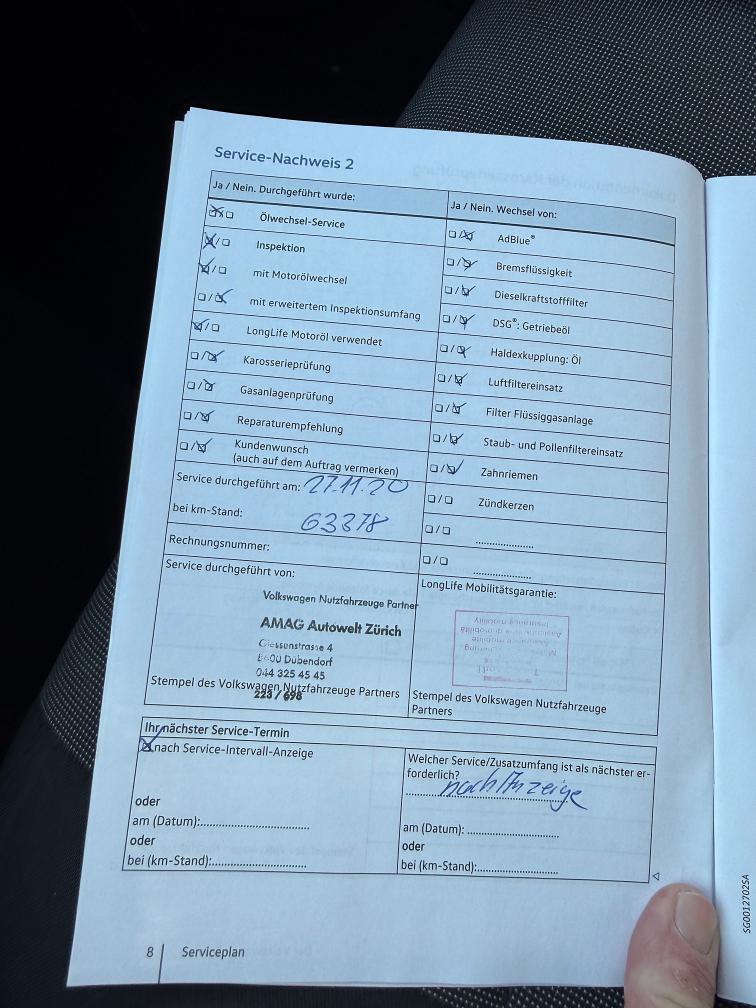 Service-Nachweis 2
Ja / Nein. Durchgeführt wurde:
Ölwechsel-Service
Inspektion
mit Motorölwechsel
mit erweitertem Inspektionsumfang
LongLife Motoröl verwendet
Karosserieprüfung
Gasanlagenprüfung
Reparaturempfehlung
Kundenwunsch
(auch auf dem Auftrag vermerken)
Ja / Nein. Wechsel von:
AdBlue®
Bremsflüssigkeit
Dieselkraftstofffilter
DSG®: Getriebeöl
Haldexkupplung: Öl
Luftfiltereinsatz
Filter Flüssiggasanlage
Staub- und Pollenfiltereinsatz
Zahnriemen
Zündkerzen
Service durchgeführt am: 27.11.20
bei km-Stand: 63378
Rechnungsnummer:
Service durchgeführt von:
Volkswagen Nutzfahrzeuge Partner
AMAG Autowelt Zürich
Giessenstrasse 4
8600 Dübendorf
044 325 45 45
223 / 698
Stempel des Volkswagen Nutzfahrzeuge Partners
LongLife Mobilitätsgarantie:
Insurance mobility
Assicurazione di mobilità
Assurance mobilité
Stempel des Volkswagen Nutzfahrzeuge
Partners
Ihr nächster Service-Termin
nach Service-Intervall-Anzeige
oder
am (Datum):
oder
bei (km-Stand):
Welcher Service/Zusatzumfang ist als nächster er-
forderlich?
nach Anzeige
am (Datum):
oder
bei (km-Stand):
8 Serviceplan
SG0012702SA